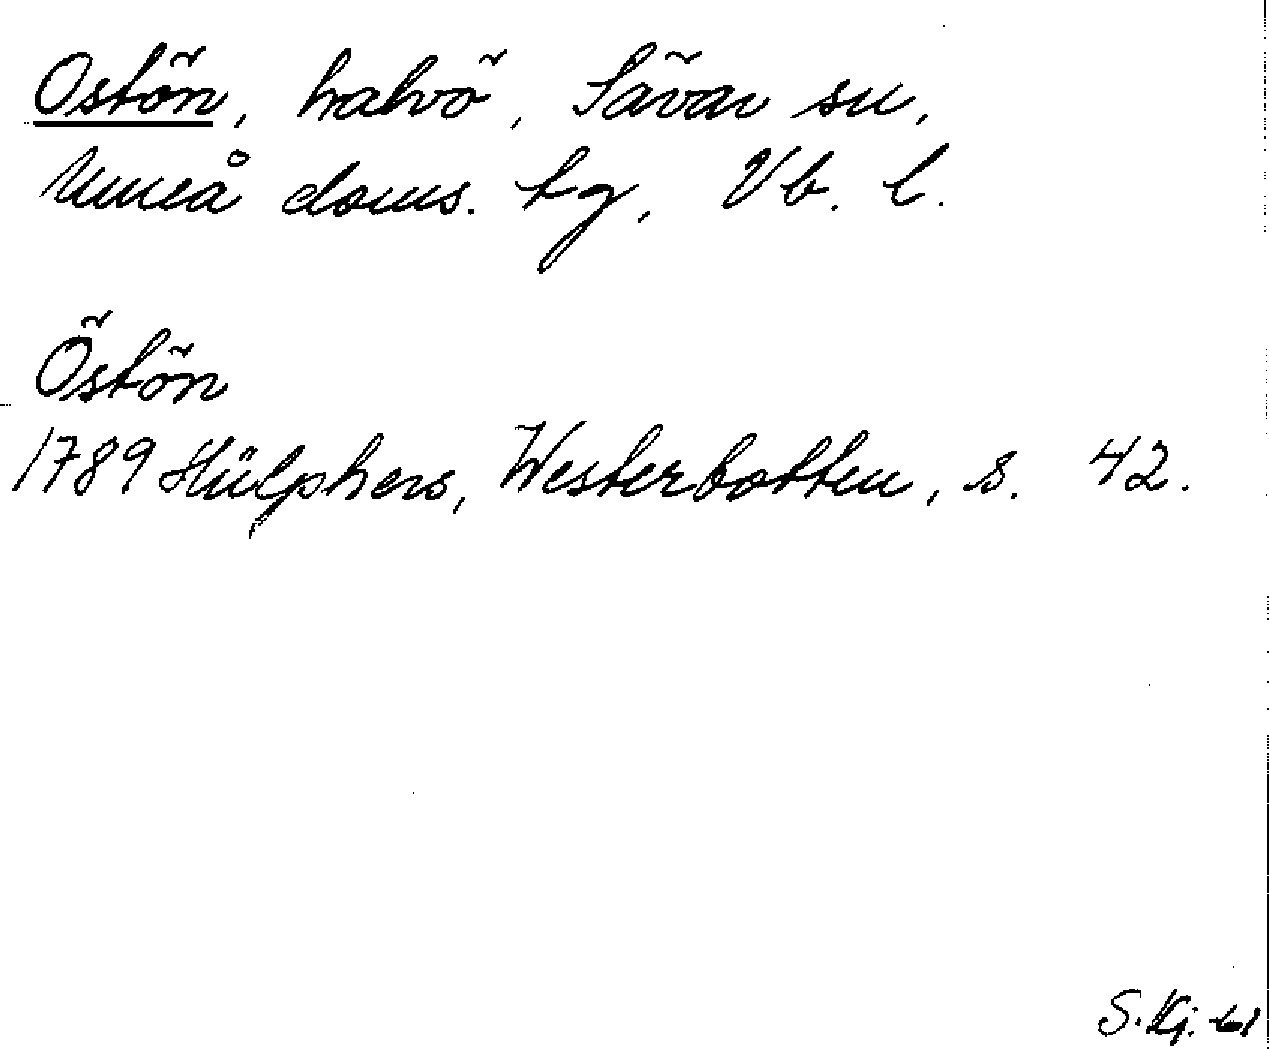 Ostön, halvö, Sävar sn,
Umeå doms. tg, Vb. l.
Östön
1789 Hülphers, Westerbotten, s. 42.
S. Kj. 61